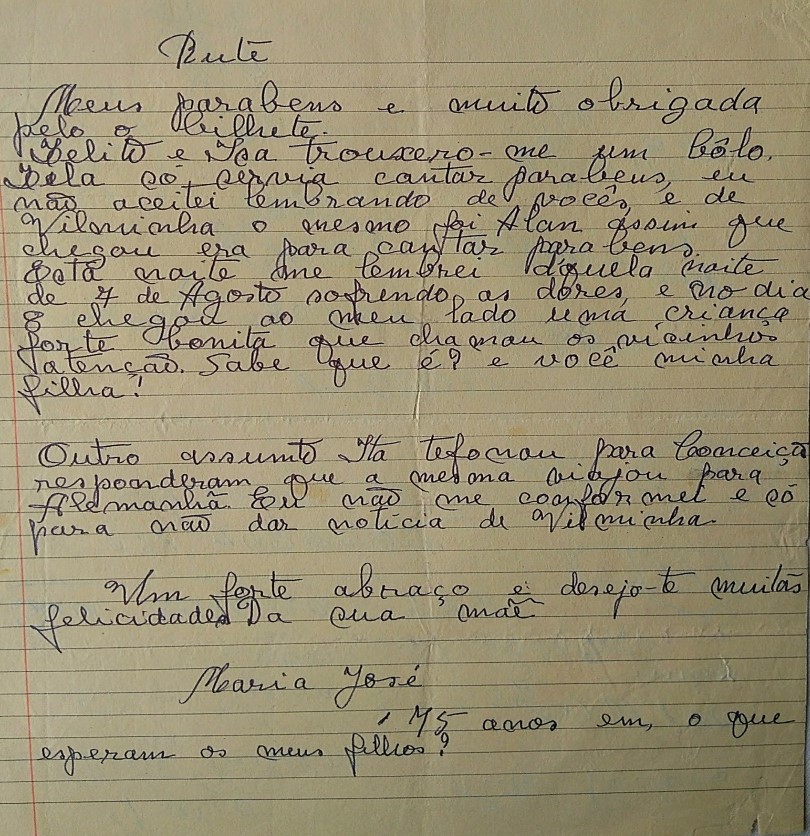 Rute
Meus parabens e muito obrigada
pelo o bilhete.
Belito e Isa trouxero-me um bôlo.
Bela só servia cantar parabeus, eu
não aceitei lembrando de vocês, e de
Vilminha o mesmo foi Alan assim que
chegou era para cantar parabens.
Está naite me lembrei daquela naite
de 7 de Agosto sofrendo as dôres, e no dia
8 chegou ao meu lado uma criança
forte bonita que chamou os vicinhos
atenção. Sabe que é? e você minha
filha!
Outro assunto Ita tefonou para Conceição
responderam que a mesma viajou para
Alemanhã. Eu não me conformei e só
para não dar notícia de Vilminha.
Um forte abraço e desejo-te muitas
felicidades Da sua mãe
Maria José
75 anos em, o que
esperam os meus filhos?